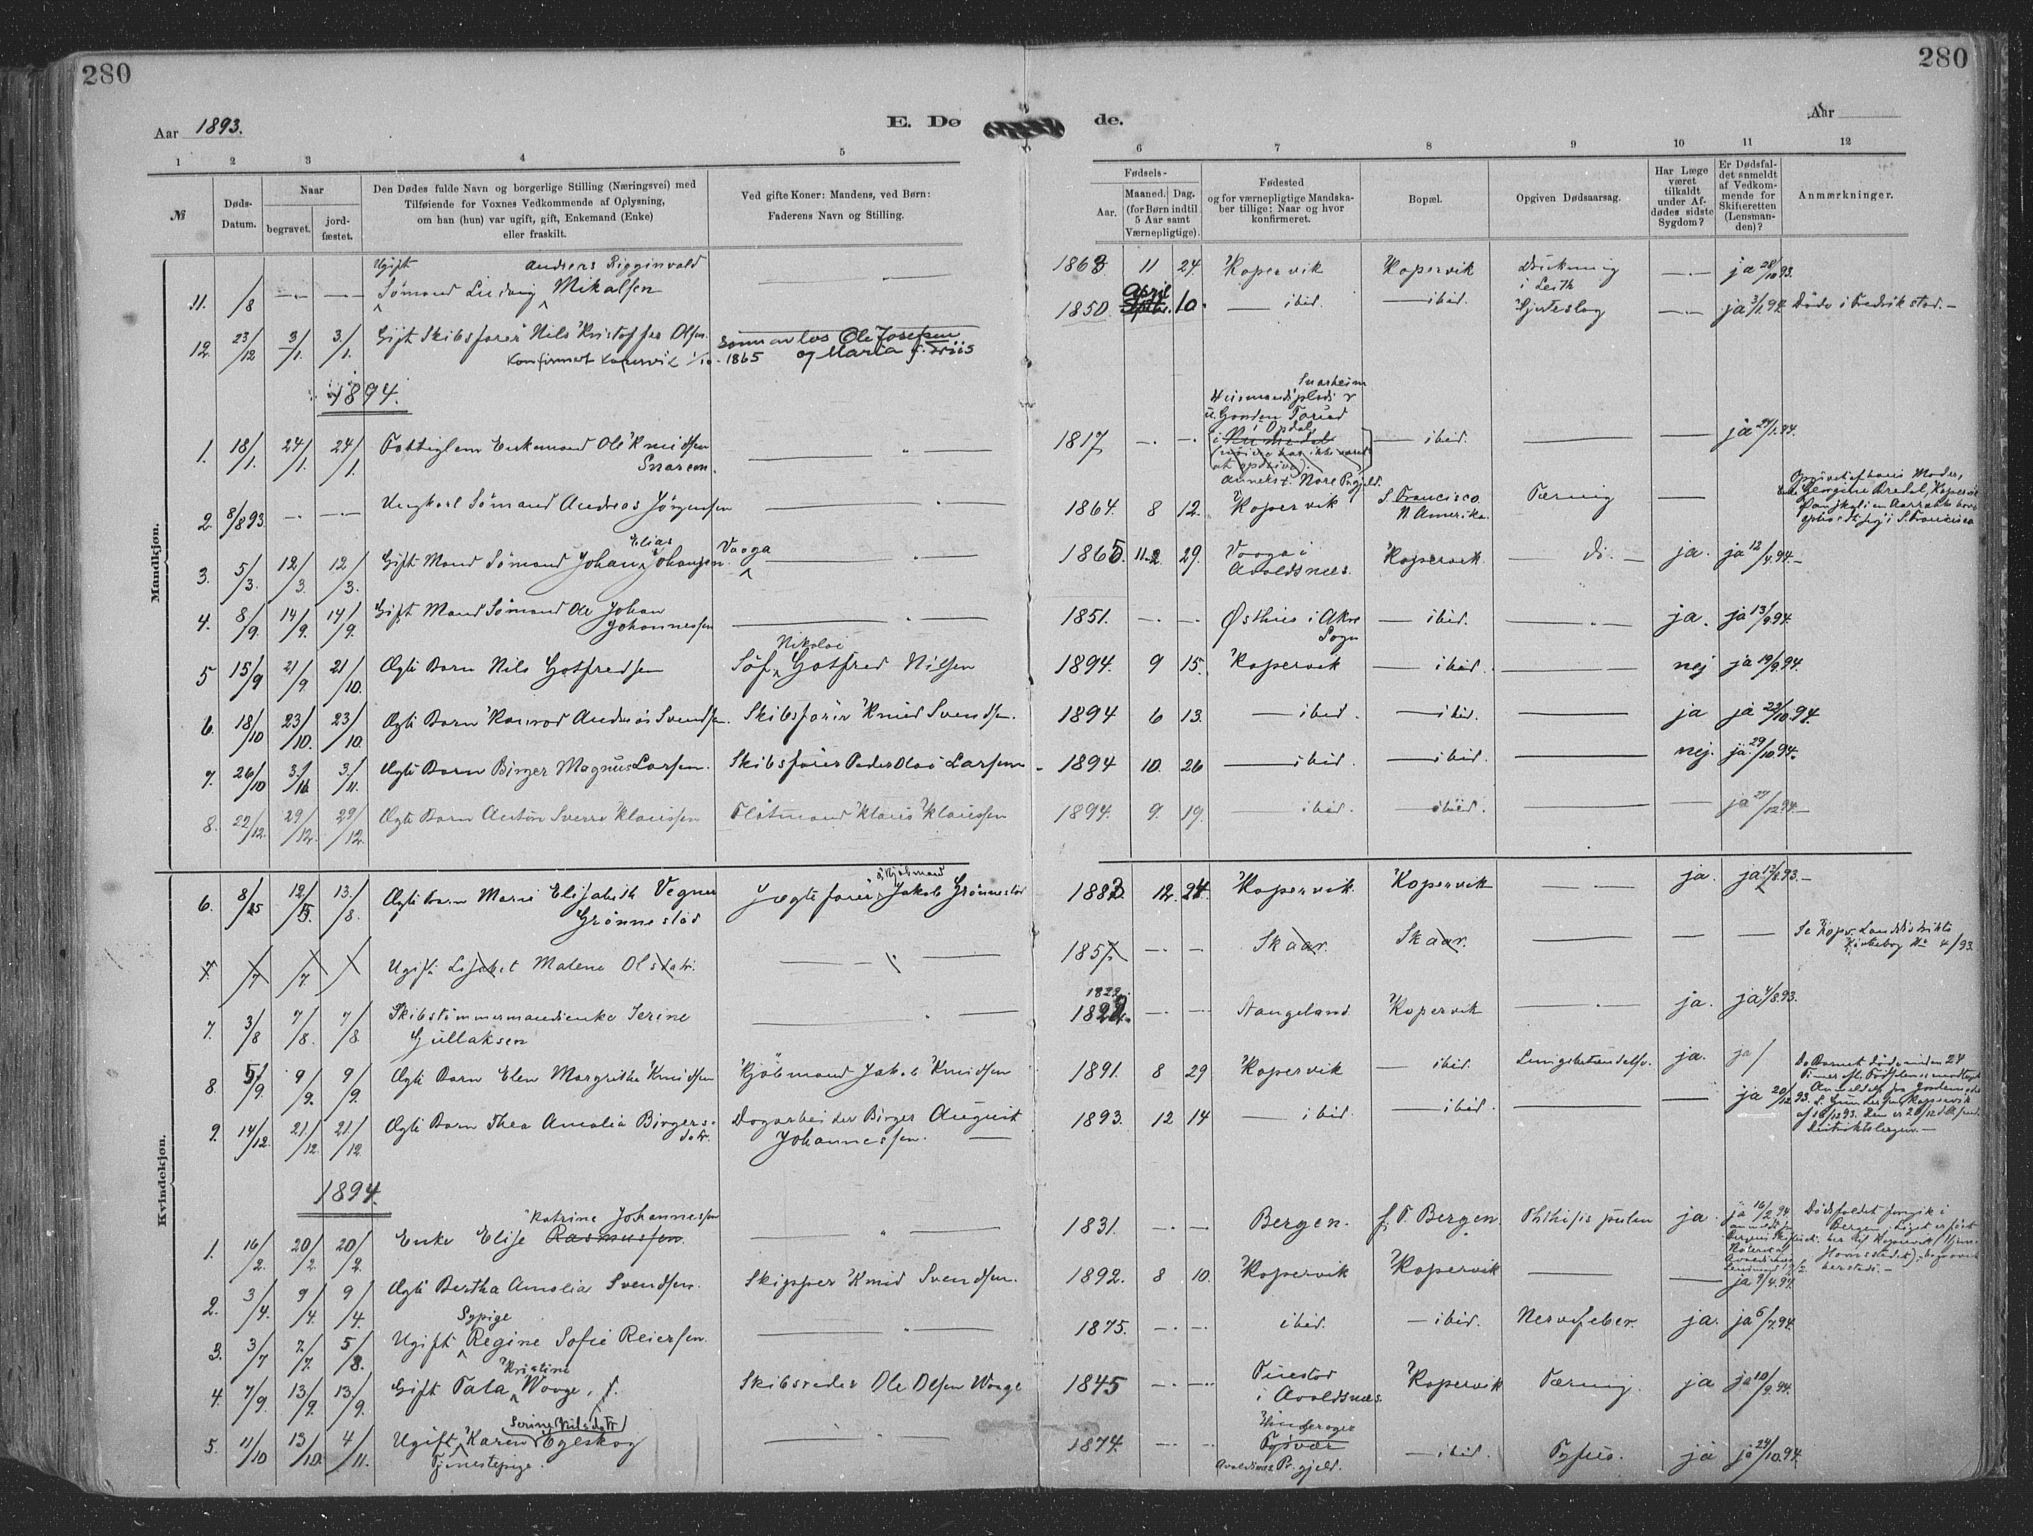 280
280
Aar 1893.
E. Dø de.
Aar
1 2 3 4 5 6 7 8 9 10 11 12
№
Døds-Datum.
Naar
begravet.
jord-fæstet.
Den Dødes fulde Navn og borgerlige Stilling (Næringsvei) med
Tilføiende for Voxnes Vedkommende af Oplysning,
om han (hun) var ugift, gift, Enkemand (Enke)
eller fraskilt.
Ved gifte Koner: Mandens, ved Børn:
Faderens Navn og Stilling.
Fødsels-
Aar.
Maaned. Dag.
(for Børn indtil
5 Aar samt
Værnepligtige).
Fødested
og for værnepligtige Mandska-
ber tillige: Naar og hvor
konfirmeret.
Bopæl.
Opgiven Dødsaarsag.
Har Læge
været
tilkaldt
under Af-
dødes sidste
Sygdom?
Er Dødsfal-
det anmeldt
af Vedkom-
mende for
Skifteretten
(Lensman-
den)?
Anmærkninger.
Mandkjøn.
Ugift Anders Rigginvald
11. /8 Sømand Ludvig Mikalsen 1863 11 24. Kopervik Kopervik Drukning i Leith ja 28/10 93.
12. 23/12 3/1. 3/1. Gift Skibsfører Nils Kristoffer Olsen. Sønn av los Ole Josefsen og Maria f. Friis 1850. April 10. ibid. ibid. Hjerteslag ja 3/1. 94. Døde i Fredrikstad.
Konfirmert Kopervik 1/10. 1865
1894.
1. 18/1. 24/1. 24/1. Fattiglem Enkemand Ole Knudsen Snareim. 1817 Snarheim Huusmandsplads u. Gaarden Toruud i Opdal, Annekst. Nore Prgjeld. ibid. ja 27/1. 94.
2. 8/8 93. Ungkarl Sømand Andreas Jørgensen 1864. 8 12. Kopervik S. Francisco N. Amerika. Tæring Opgivet af hans Moder, Enke Georgine Bredal, Kopervik
3. 5/3. 12/3. 12/3. Gift Mand Sømand Johan Elias Johansen. Vaaga 1865. 11.2 29. Vaaga i Avaldsnes. Kopervik. Do. ja. ja 12/4. 94.
4. 8/9. 14/9. 14/9. Gift Mand Sømand Ole Johan Johannessen 1851. Østhus i Akre Sogn ibid. ja. ja 13/9 94.
5 15/9 21/9. 21/10. Ægte Barn Nils Gotfredsen Søf. Nikolai Gotfred Nilsen 1894. 9 15. Kopervik ibid. nej ja 19/9. 94.
6. 18/10 23/10. 23/10. Ægte Barn Konrad Andreas Svendsen. Skibsfører Knud Svendsen. 1894 6 13. ibid. ibid. ja ja 22/10. 94.
7. 26/10 3/11 3/11. Ægte Barn Birger Magnus Larsen. Skibsfører Peder Olai Larsen 1894 10. 26 ibid. ibid. nej. ja. 29/10. 94.
8. 22/12. 29/12. 29/12. Ægte Barn Anton Sverre Klausen Flötmand Klaus Klausen 1894. 9. 19. ibid. ibid. ja 27/12. 94.
Kvindekjøn.
6. 8/5 12/5. 13/8. Ægte Barn Marie Elisabeth Vegner Grønnestad Jægtefører & Kjøbmand Jakob Grønnestad 1883. 12. 24. Kopervik. Kopervik ja. ja 12/8 93.
7. /7 /7. Ugift Lisabet Malene Olsdatr. 1857. Skaar. Skaar. Se Kopv. Landdistrikts Kirkebog No 4/93.
7. 3/8 7/8. 7/8 Skibstømmermandsenke Serine Gullaksen 1822. Stangeland Kopervik ja. ja 4/8. 93.
8. 5/9. 9/9. 9/9. Ægte Barn Elen Margrethe Knudsen Kjöbmand Jakob Knudsen 1891. 8 29 Kopervik ibid. Lungebetændelse. ja. ja /
9. 14/12. 21/12 21/12. Ægte Barn Thea Amalia Birgers-datr. Dagarbeider Birger August Johannessen. 1893. 12 14 ibid. ibid. ja 20/12 93. Da Barnet døde inden 24 Timer eft. Fødselen
1894.
1. 16/2. 20/2. 20/2. Enke Elise Katrine Johannessen Rasmussen. 1831. Bergen. f. T. Bergen. Phthisis pulm ja. ja 16/2 94. Dødsfaldet foregik i Bergen.
2. 3/4. 9/4. 9/4. Ægte Bertha Amalia Svendsen. Skipper Knud Svendsen. 1892. 8 10. Kopervik Kopervik ja 9/4. 94.
3. 3/7 7/7. 5/8. Ugift Sypige Regine Sofie Reiersen. 1875. ibid. ibid. Nervefeber. ja. ja 6/7. 94.
4. 7/9. 13/9. 13/9. Gift Tala Kristine Waage, f. Skibsreder Ole Olsen Waage 1845 Tuestad i Avaldsnes. Kopervik Tæring. ja ja 10/9. 94.
5. 11/10 13/10. 4/11. Ugift Karen Serine Nilsdtr Egleskog Tjenestepige. 1874. Avaldsnes Pr.gjeld. ibid. Tyfus. ja ja 24/10. 94.